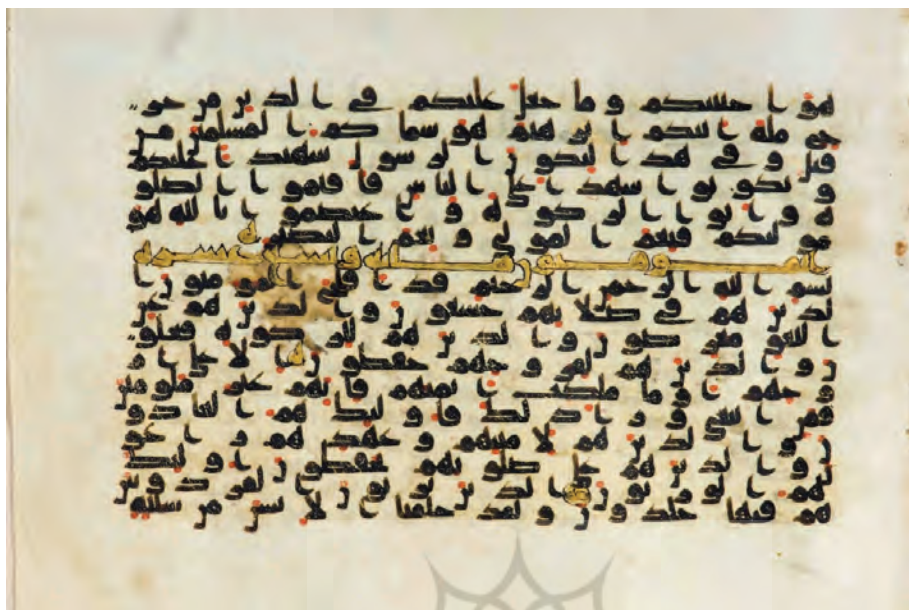 هو اجتبيكم وما جعل عليكم في الدين من حر
ج ملة ابيكم ابرهيم هو سميكم المسلمين من
قبل وفي هذا ليكون الرسول شهيدا عليكم
وتكونوا شهدا على الناس فاقيموا الصلو
ة واتوا الزكوة واعتصموا بالله هو
موليكم فنعم المولى ونعم النصير
بسم الله الرحمن الرحيم قد افلح المومنون ا
لذين هم في صلاتهم خشعون والذين هم عن
اللغو معرضون والذين هم للزكوة فعلو
ن والذين هم لفروجهم حفظون الا على از
وجهم او ما ملكت ايمنهم فانهم غير ملومين
فمن ابتغى ورا ذلك فاوليك هم العادو
ن والذين هم لامنتهم وعهدهم راعو
ن والذين هم على صلوتهم يحفظون اوليك
هم الورثون الذين يرثون الفردوس
هم فيها خلدون ولقد خلقنا الانسن من سللة